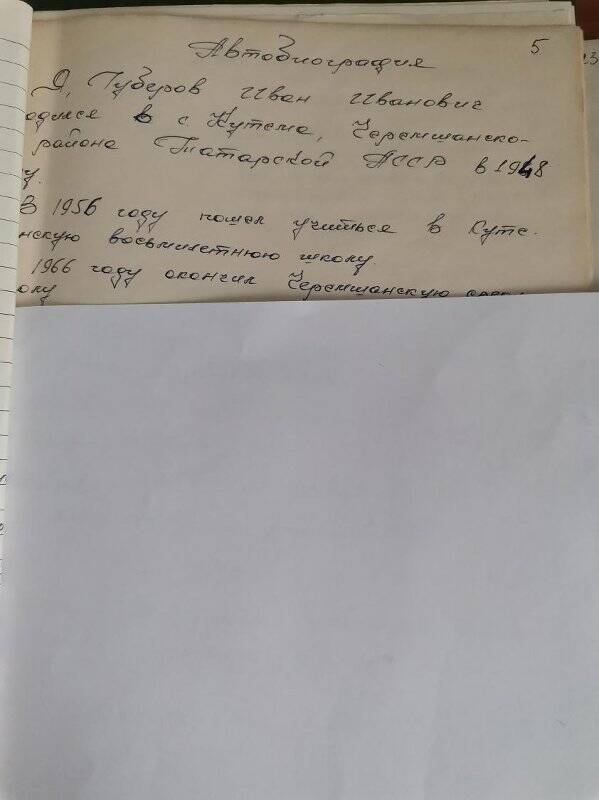 5
Автобиография
Я, Губеров Иван Иванович
одился в с Кутема, Черемшанско-
района Татарской АССР в 1948
у.
В 1956 году пошел учиться в Куте-
нскую восьмилетнюю школу.
1966 году окончил Черемшанскую
олу